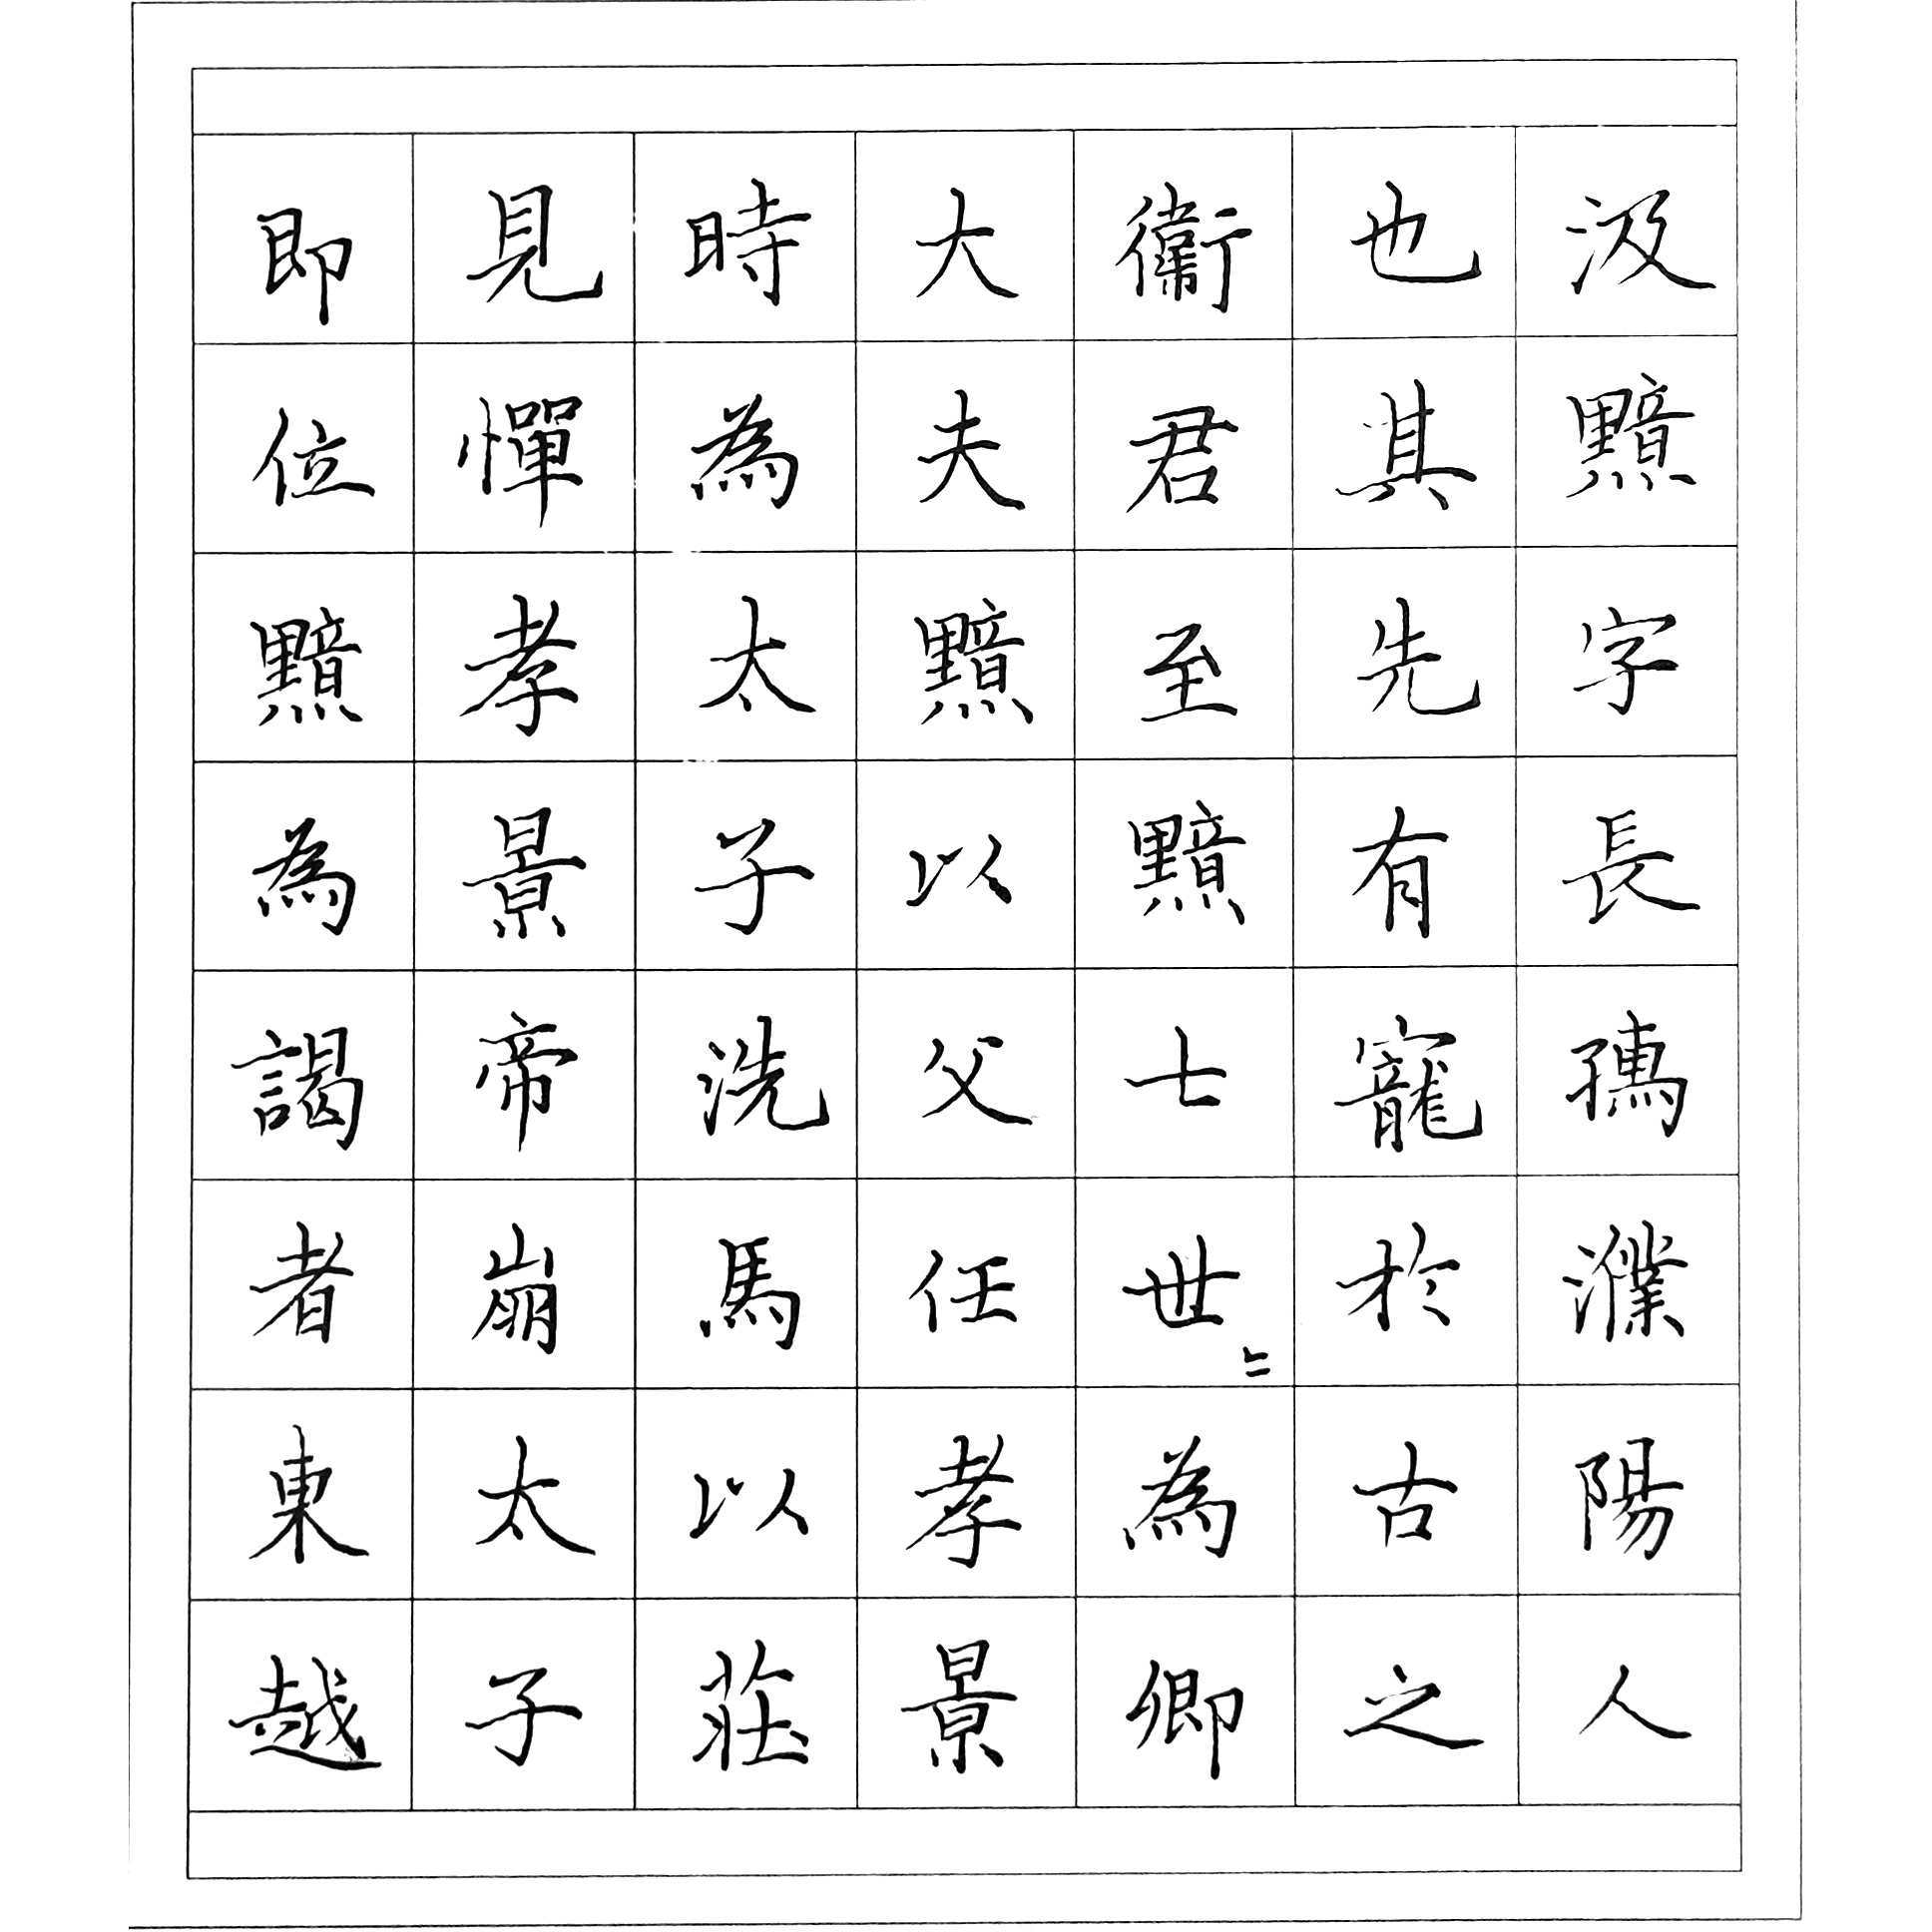 汲黯字長孺濮陽人
也其先有寵於古之
衞君至黯七世〻為卿
大夫黯以父任孝景
時為太子洗馬以莊
見憚孝景帝崩太子
即位黯為謁者東越